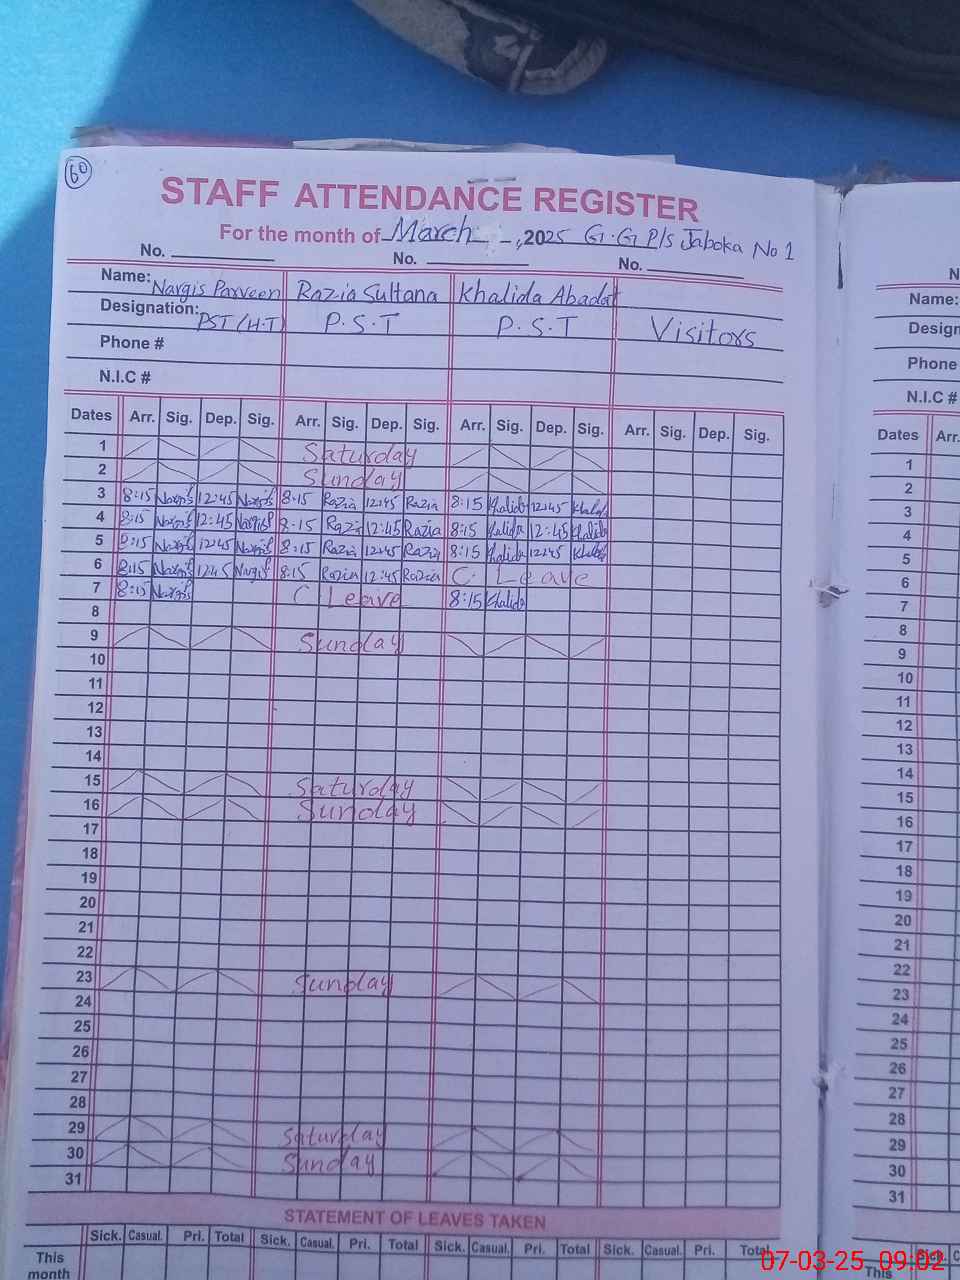 60
STAFF ATTENDANCE REGISTER
For the month of March, 2025 G.G P/s Jaboka No 1
No. No. No.
Name: Nargis Parveen Razia Sultana Khalida Abadat
Designation: PST (H.T) P.S.T P.S.T Visitors
Phone #
N.I.C #
Dates Arr. Sig. Dep. Sig. Arr. Sig. Dep. Sig. Arr. Sig. Dep. Sig. Arr. Sig. Dep. Sig.
1 Saturday
2 Sunday
3 8:15 Nargis 12:45 Nargis 8:15 Razia 12:45 Razia 8:15 Khalida 12:45 Khalida
4 8:15 Nargis 12:45 Nargis 8:15 Razia 12:45 Razia 8:15 Khalida 12:45 Khalida
5 8:15 Nargis 12:45 Nargis 8:15 Razia 12:45 Razia 8:15 Khalida 12:45 Khalida
6 8:15 Nargis 12:45 Nargis 8:15 Razia 12:45 Razia C. Leave
7 8:15 Nargis C Leave 8:15 Khalida
8
9 Sunday
10
11
12
13
14
15 Saturday
16 Sunday
17
18
19
20
21
22
23 Sunday
24
25
26
27
28
29 Saturday
30 Sunday
31
STATEMENT OF LEAVES TAKEN
Sick. Casual. Pri. Total Sick. Casual. Pri. Total Sick. Casual. Pri. Total Sick. Casual. Pri. Total
This
month
N
Name:
Design
Phone
N.I.C #
Dates Arr.
1
2
3
4
5
6
7
8
9
10
11
12
13
14
15
16
17
18
19
20
21
22
23
24
25
26
27
28
29
30
31
Sick. C
This
07-03-25 09:02